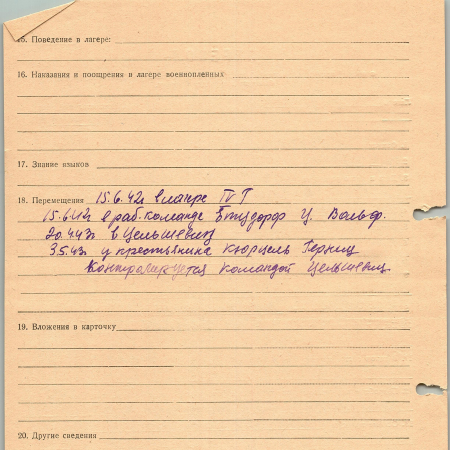 15. Поведение в лагере:
16. Наказания и поощрения в лагере военнопленных
17. Знание языков
18. Перемещения 15.6.42г в лагере IV Т
15.6.42г в раб. команде Бецдорф Ц. Вольф.
20.4.43г в Цельшевиц
3.5.43г у крестьянина Кюрцель Герниц
Контролируется командой Цельшевиц
19. Вложения в карточку
20. Другие сведения